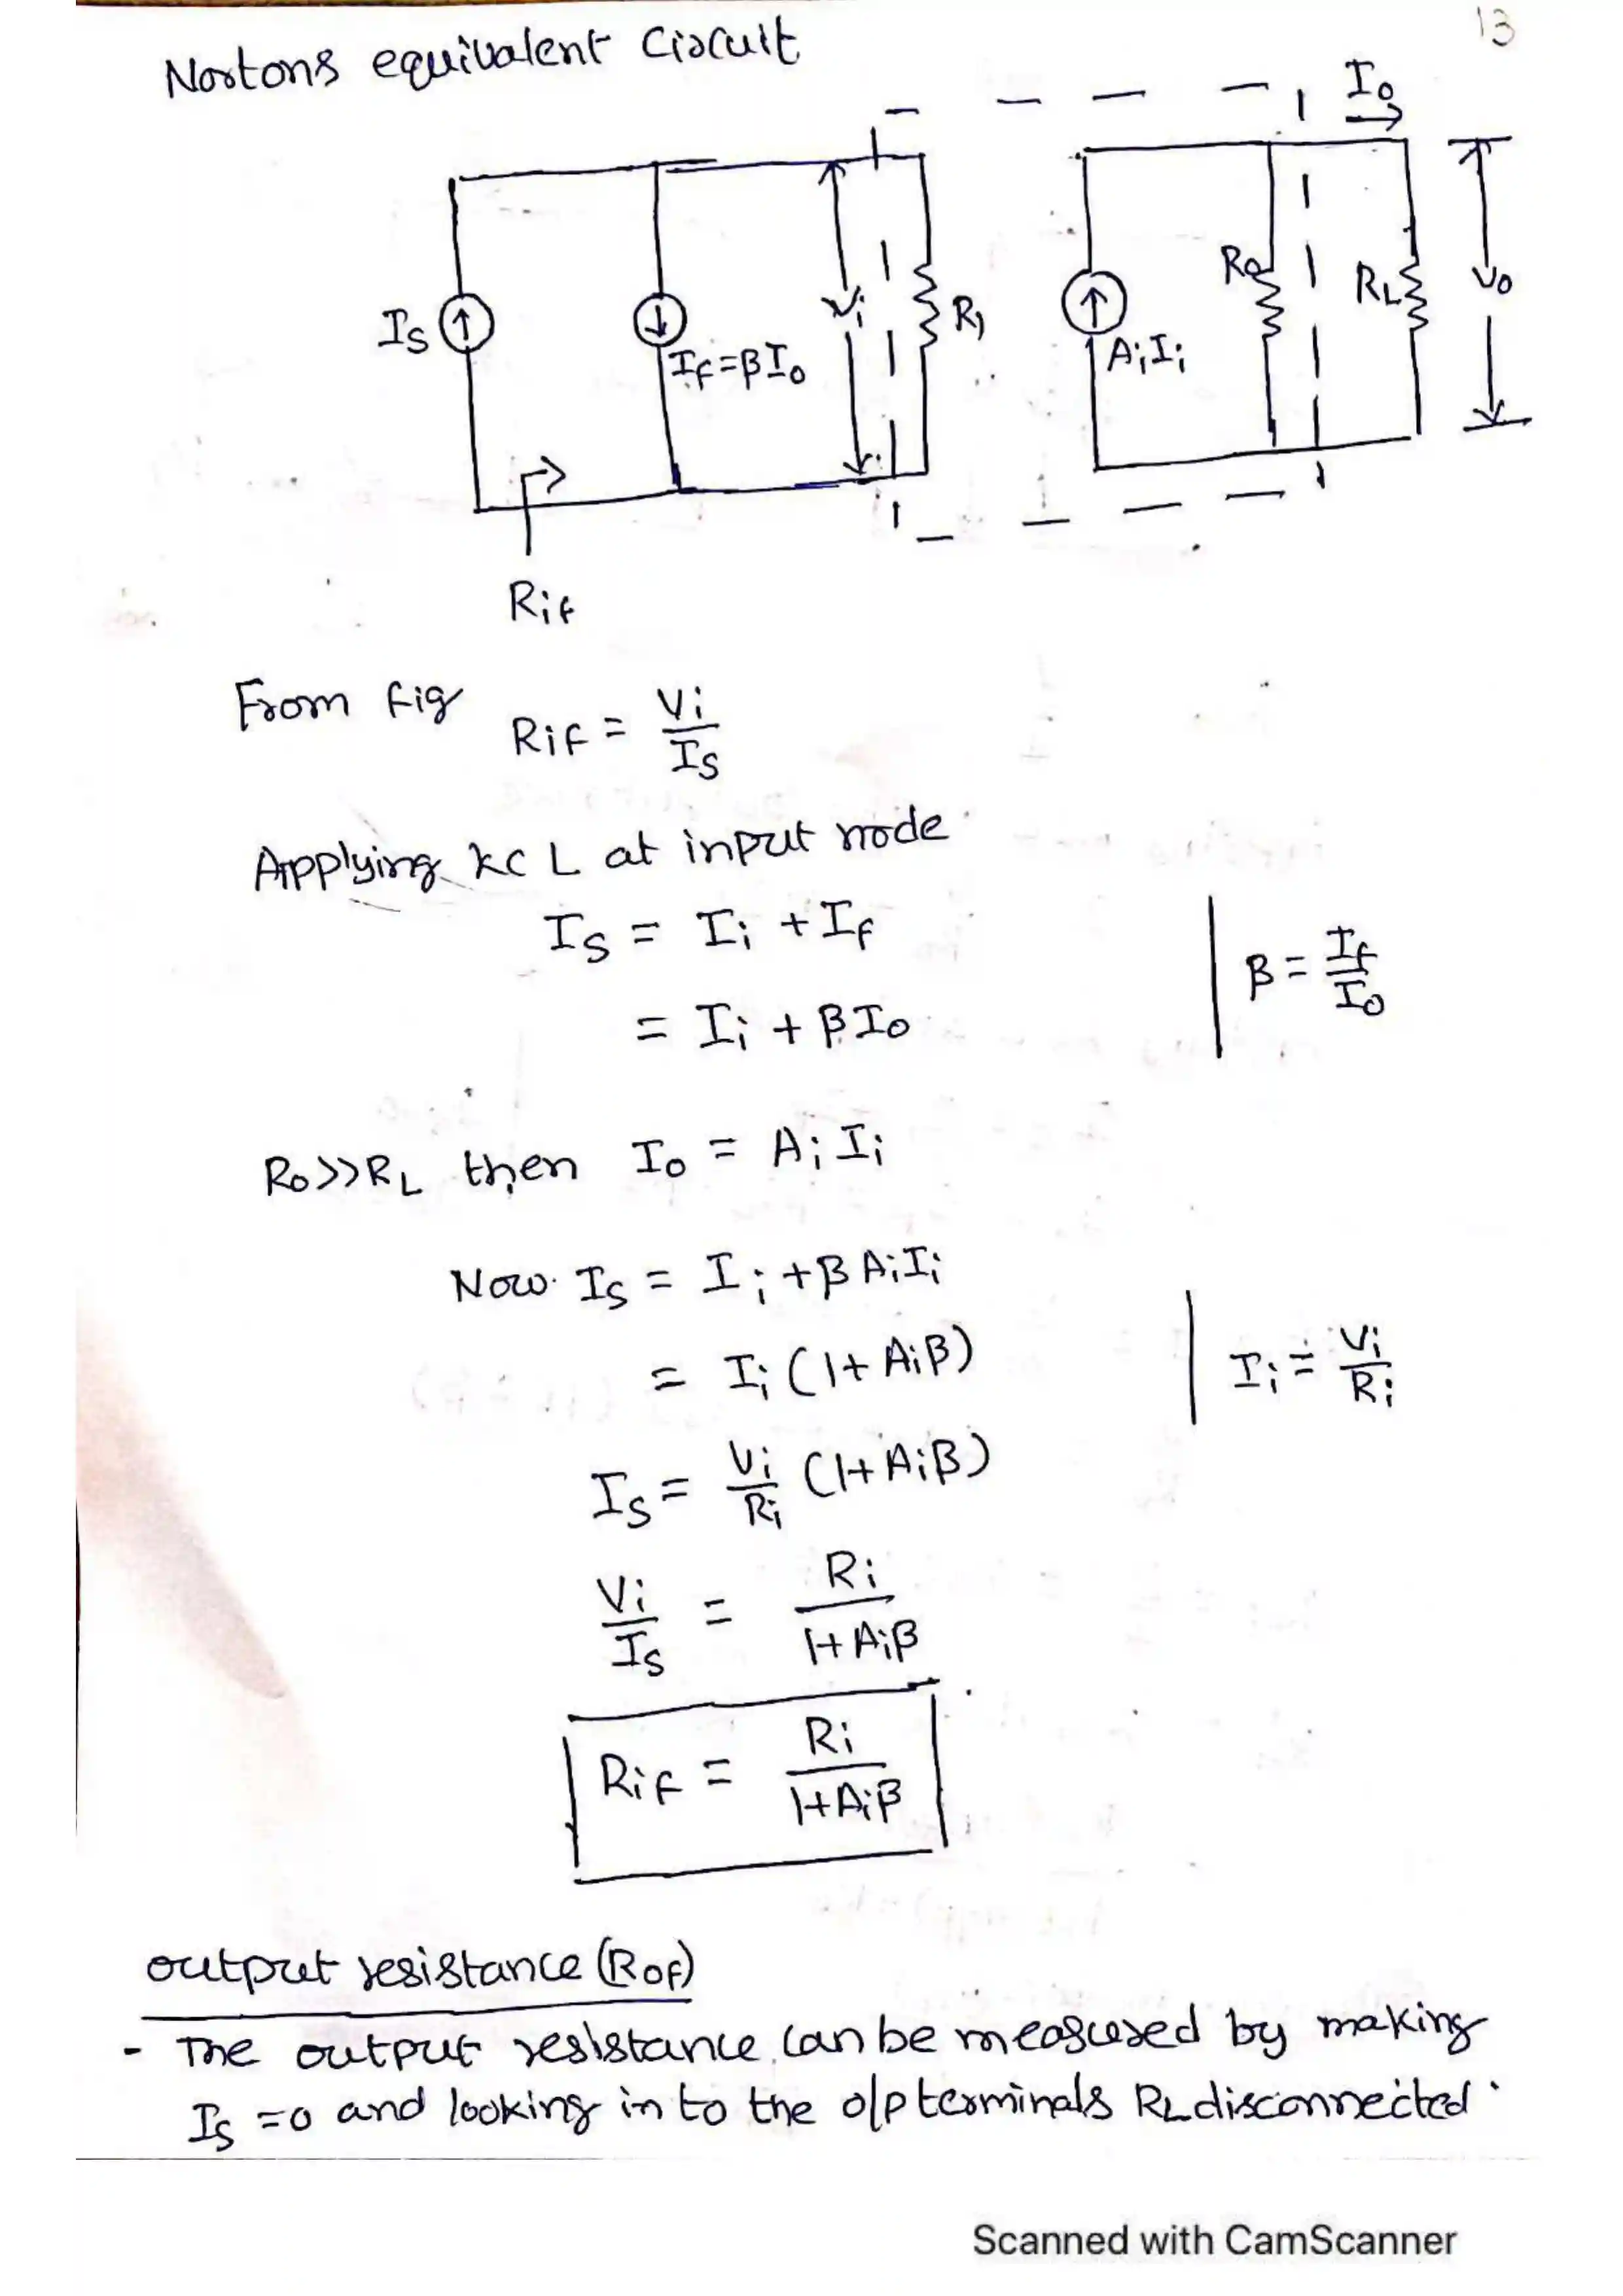 13
Nortons equivalent Circuit
Io
Is
If=βIo
Vi
R1
AiIi
Ro
RL
Vo
Rif
From fig Rif = Vi/Is
Applying KCL at input node
Is = Ii + If | β = If/Io
= Ii + βIo
Ro>>RL then Io = Ai Ii
Now Is = Ii + β AiIi
= Ii (1+ Aiβ) | Ii = Vi/Ri
Is = Vi/Ri (1+ Aiβ)
Vi/Is = Ri/1+ Aiβ
Rif = Ri/1+Aiβ
output resistance (Rof)
- The output resistance can be measured by making
Is =0 and looking in to the o/p terminals RL disconnected.
Scanned with CamScanner